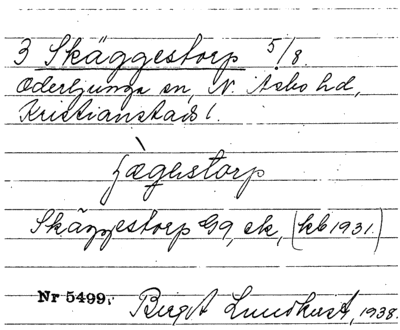 3 Skäggestorp 5/8
Oderljunga sn, N. Åsbo hd,
Kristianstads l.
Skäggestorp G9, ek, (kb 1931.)
Nr 5499. Birgit Lundkvist, 1938.